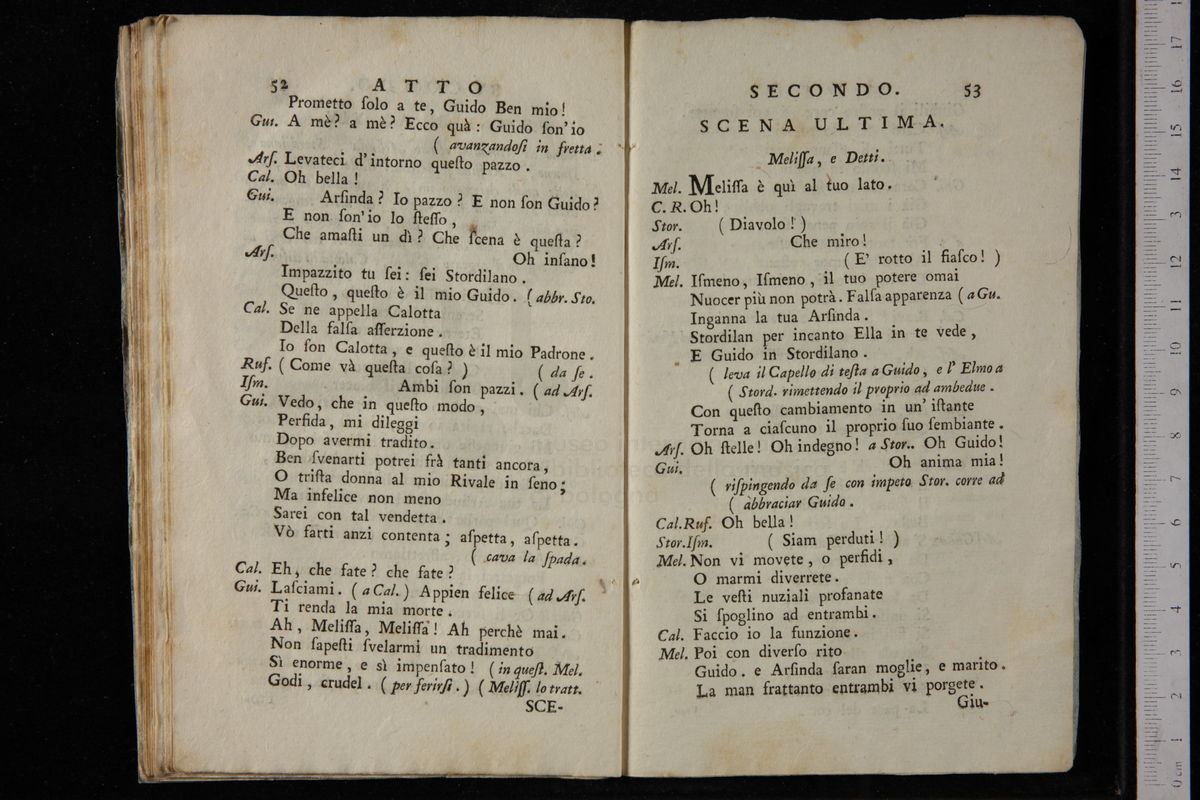 52 ATTO
Prometto ſolo a te, Guido Ben mio!
Gui. A mè? a mè? Ecco quà: Guido ſon'io
( avanzandoſi in fretta.
Arſ. Levateci d'intorno queſto pazzo.
Cal. Oh bella!
Gui. Arſinda? Io pazzo? E non ſon Guido?
E non ſon'io lo ſteſſo,
Che amaſti un dì? Che ſcena è queſta?
Arſ. Oh inſano!
Impazzito tu ſei: ſei Stordilano.
Queſto, queſto è il mio Guido. (abbr. Sto.
Cal. Se ne appella Calotta
Della falſa aſſerzione.
Io ſon Calotta, e queſto è il mio Padrone.
Ruf. ( Come và queſta coſa? ) ( da ſe.
Iſm. Ambi ſon pazzi. ( ad Arſ.
Gui. Vedo, che in queſto modo,
Perfida, mi dileggi
Dopo avermi tradito.
Ben ſvenarti potrei frà tanti ancora,
O triſta donna al mio Rivale in ſeno;
Ma infelice non meno
Sarei con tal vendetta.
Vò farti anzi contenta; aſpetta, aſpetta.
( cava la ſpada.
Cal. Eh, che fate? che fate?
Gui. Laſciami. ( a Cal. ) Appien felice ( ad Arſ.
Ti renda la mia morte.
Ah, Meliſſa, Meliſſa! Ah perchè mai.
Non ſapeſti ſvelarmi un tradimento
Sì enorme, e sì impenſato! ( in queſt. Mel.
Godi, crudel. ( per ferirſi. ) ( Meliſſ. lo tratt.
SCE-
SECONDO. 53
SCENA ULTIMA.
Meliſſa, e Detti.
Mel. Meliſſa è quì al tuo lato.
C. R. Oh!
Stor. ( Diavolo! )
Arſ. Che miro!
Iſm. ( E' rotto il fiaſco! )
Mel. Iſmeno, Iſmeno, il tuo potere omai
Nuocer più non potrà. Falſa apparenza ( a Gu.
Inganna la tua Arſinda.
Stordilan per incanto Ella in te vede,
E Guido in Stordilano.
( leva il Capello di teſta a Guido, e l' Elmo a
( Stord. rimettendo il proprio ad ambedue.
Con queſto cambiamento in un' iſtante
Torna a ciaſcuno il proprio ſuo ſembiante.
Arſ. Oh ſtelle! Oh indegno! a Stor.. Oh Guido!
Gui. Oh anima mia!
( riſpingendo da ſe con impeto Stor. corre ad
( abbraciar Guido.
Cal. Ruf. Oh bella!
Stor. Iſm. ( Siam perduti! )
Mel. Non vi movete, o perfidi,
O marmi diverrete.
Le veſti nuziali profanate
Si ſpoglino ad entrambi.
Cal. Faccio io la funzione.
Mel. Poi con diverſo rito
Guido. e Arſinda ſaran moglie, e marito.
La man frattanto entrambi vi porgete.
Giu-